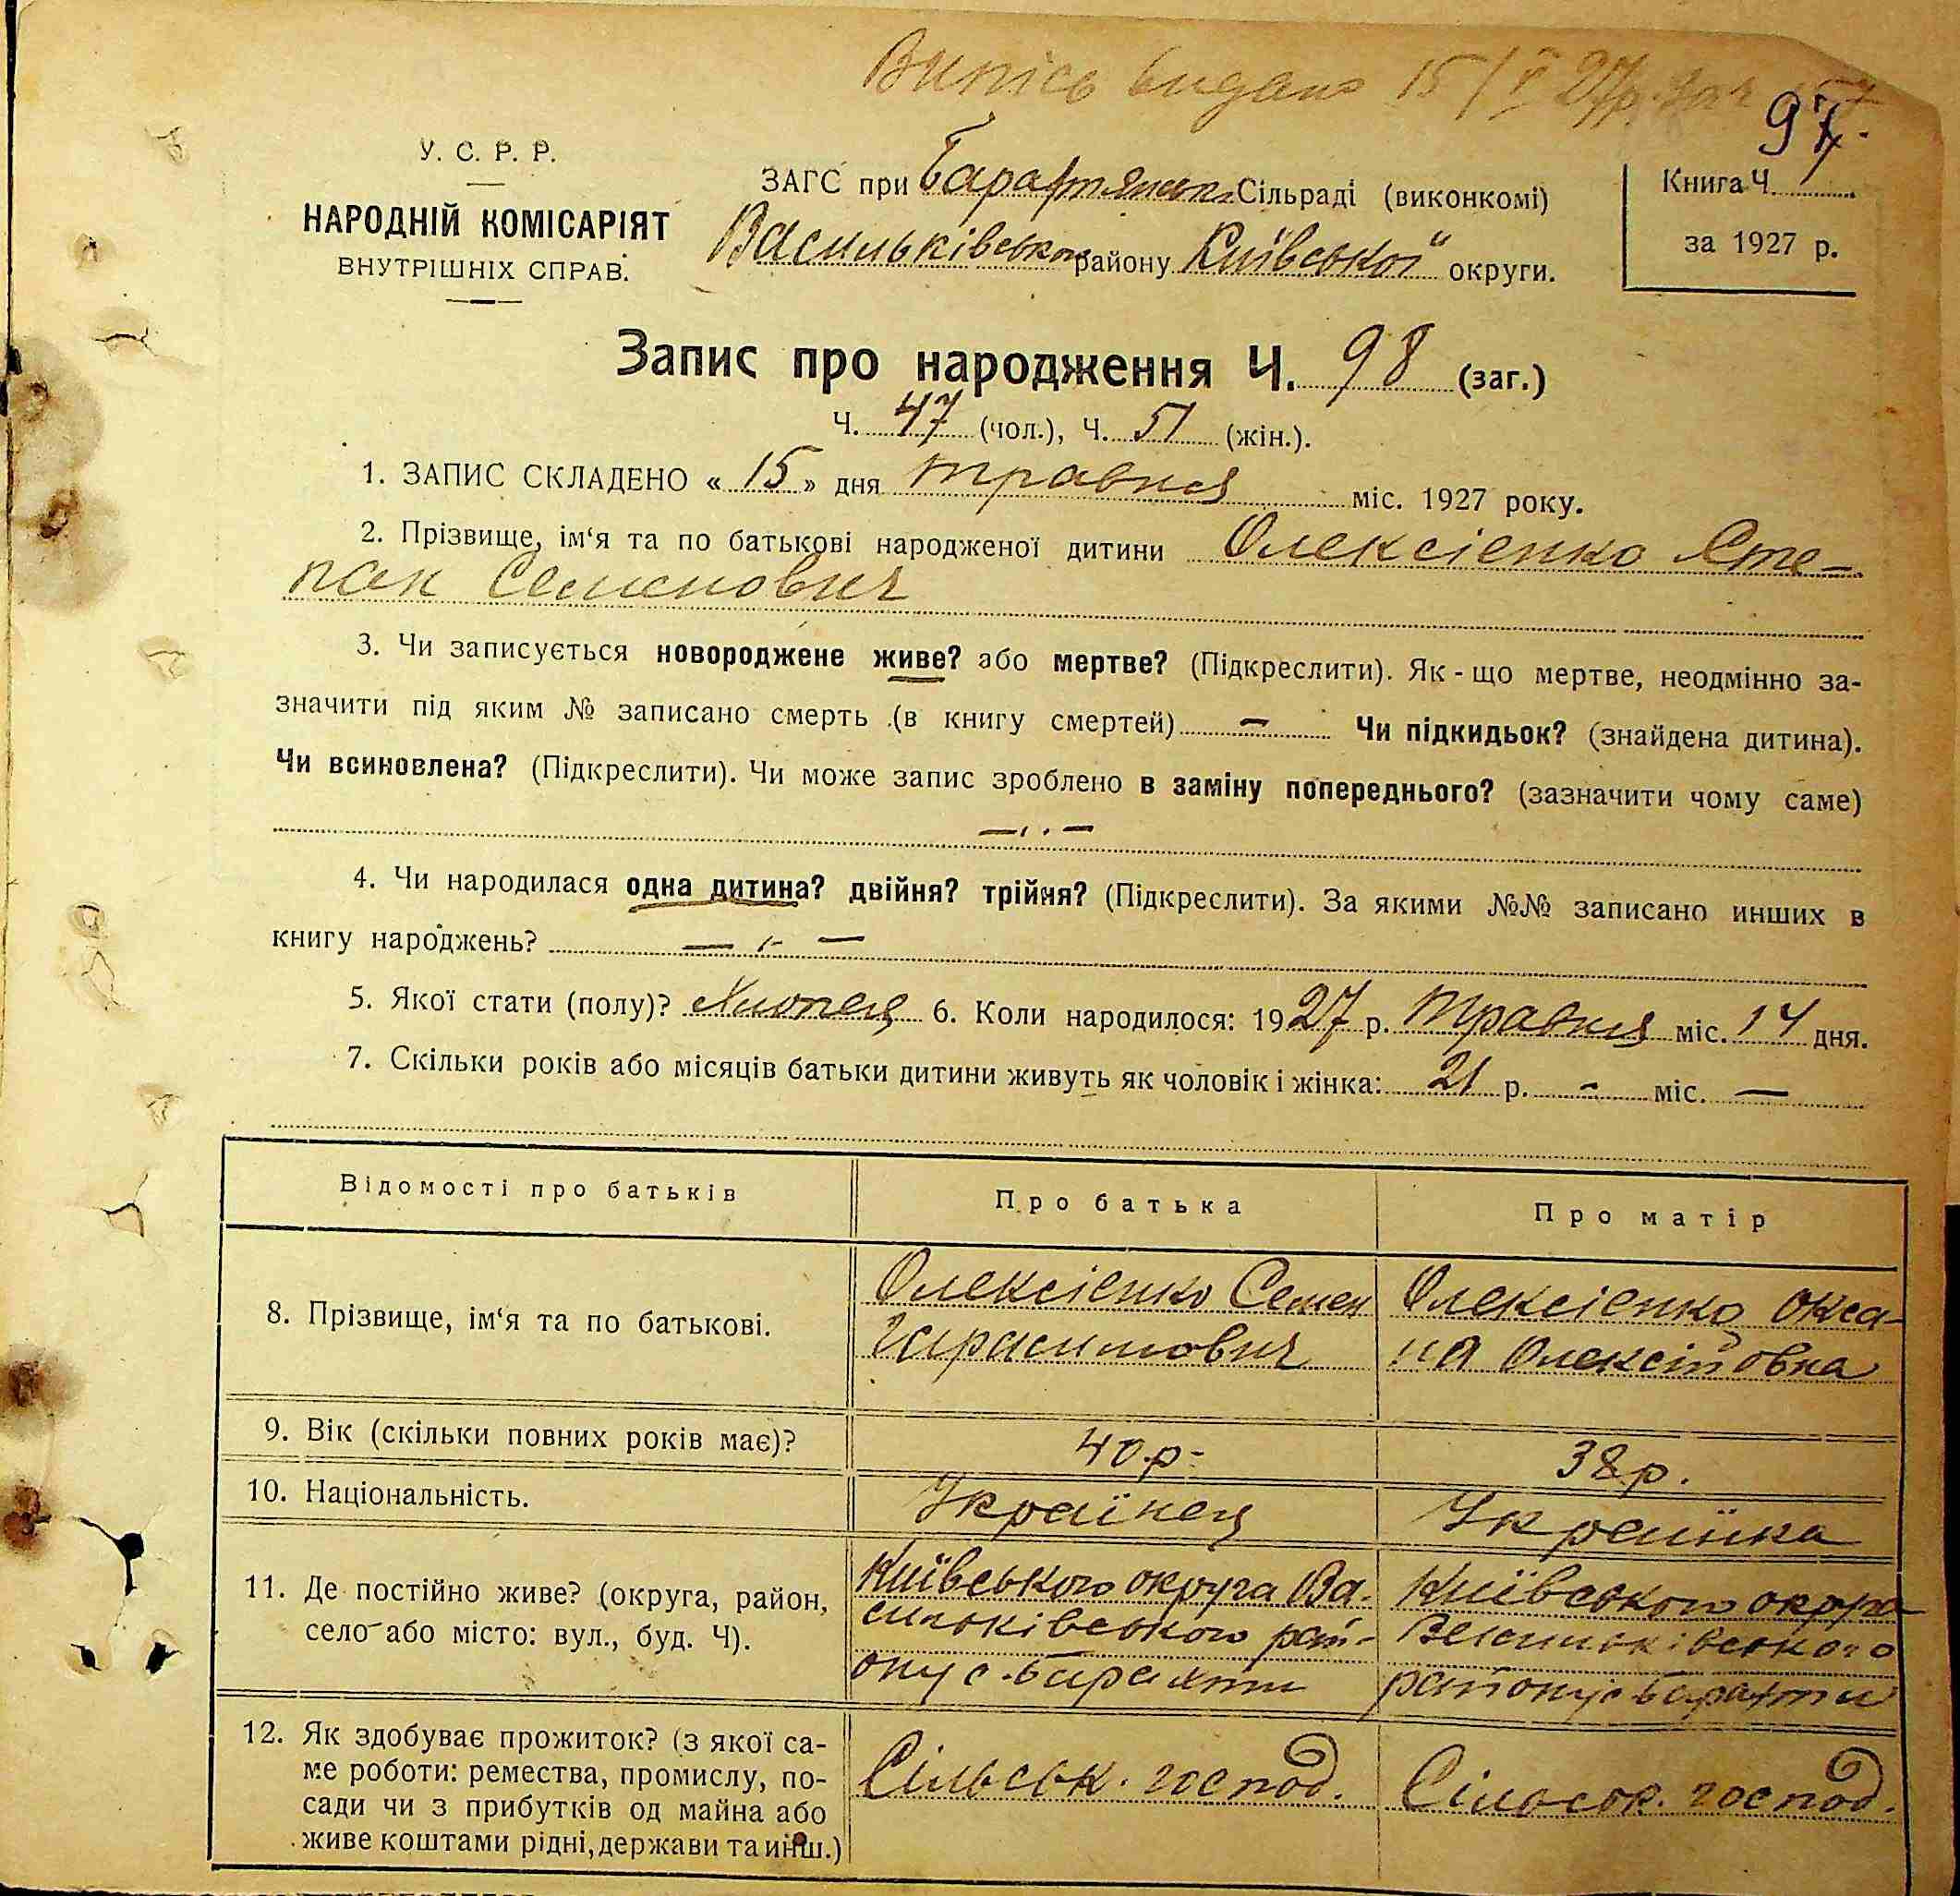 Випісь видано 15/V 27р. за ч
97.
У. С. Р. Р.
НАРОДНІЙ КОМІСАРІЯТ
ВНУТРІШНІХ СПРАВ.
ЗАГС при Барахтянськ Сільраді (виконкомі)
Васильківського району Київської округи.
Книга Ч.
за 1927 р.
Запис про народження Ч. 98 (заг.)
Ч. 47 (чол.), Ч. 51 (жін.).
1. ЗАПИС СКЛАДЕНО « 15 » дня травня міс. 1927 року.
2. Прізвище, ім‘я та по батькові народженої дитини Олексієнко Сте-
пан Семенович
3. Чи записується новороджене живе? або мертве? (Підкреслити). Як - що мертве, неодмінно за-
значити під яким № записано смерть (в книгу смертей) — Чи підкидьок? (знайдена дитина).
Чи всиновлена? (Підкреслити). Чи може запис зроблено в заміну попереднього? (зазначити чому саме)
4. Чи народилася одна дитина? двійня? трійня? (Підкреслити). За якими №№ записано инших в
книгу народжень?
5. Якої стати (полу)? Хлопець 6. Коли народилося: 1927 р. травня міс. 14 дня.
7. Скільки років або місяців батьки дитини живуть як чоловік і жінка: 21 р. - міс. —
Відомості про батьків
Про батька
Про матір
8. Прізвище, ім‘я та по батькові.
Олексієнко Семен
Гарасимович
Олексієнко Окса-
на Олексіївна
9. Вік (скільки повних років має)?
40 р.
38 р.
10. Національність.
Українец
Українка
11. Де постійно живе? (округа, район,
село або місто: вул., буд. Ч).
Київського округа Ва-
сильківського рай-
ону с. Барахти
Київського округа
Васильківського
району с Барахти
12. Як здобуває прожиток? (з якої са-
ме роботи: ремества, промислу, по-
сади чи з прибутків од майна або
живе коштами рідні, держави та инш.)
Сільськ. господ.
Сільськ. господ.